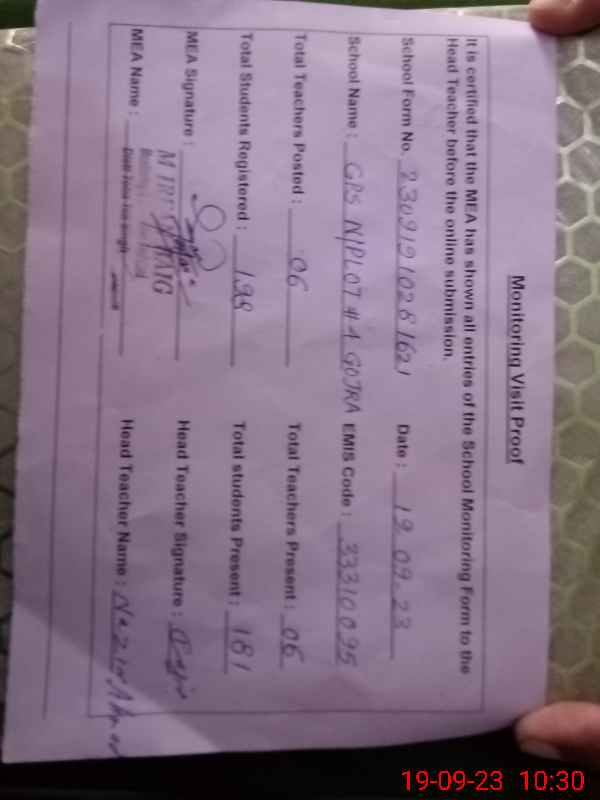 Monitoring Visit Proof
It is certified that the MEA has shown all entries of the School Monitoring Form to the
Head Teacher before the online submission.
School Form No. 23091910281621 Date : 19.09.23
School Name : GPS N/PLOT #4 GOJRA EMIS Code : 33310095
Total Teachers Posted : 06 Total Teachers Present : 06
Total Students Registered : 198 Total students Present : 181
MEA Signature : Head Teacher Signature :
MEA Name : Head Teacher Name :
19-09-23 10:30